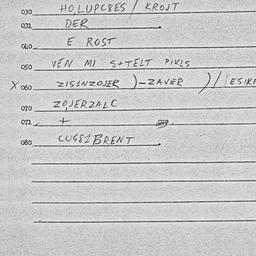 030 HOLUPC8ES / KROJT
031 DER
040 E ROST
050 VEN MI S+TELT PIKLS
X 060 ZISINZOJER )-ZAVER )/
070 ZOJERZALC
071 +
080 CUG81BRENT